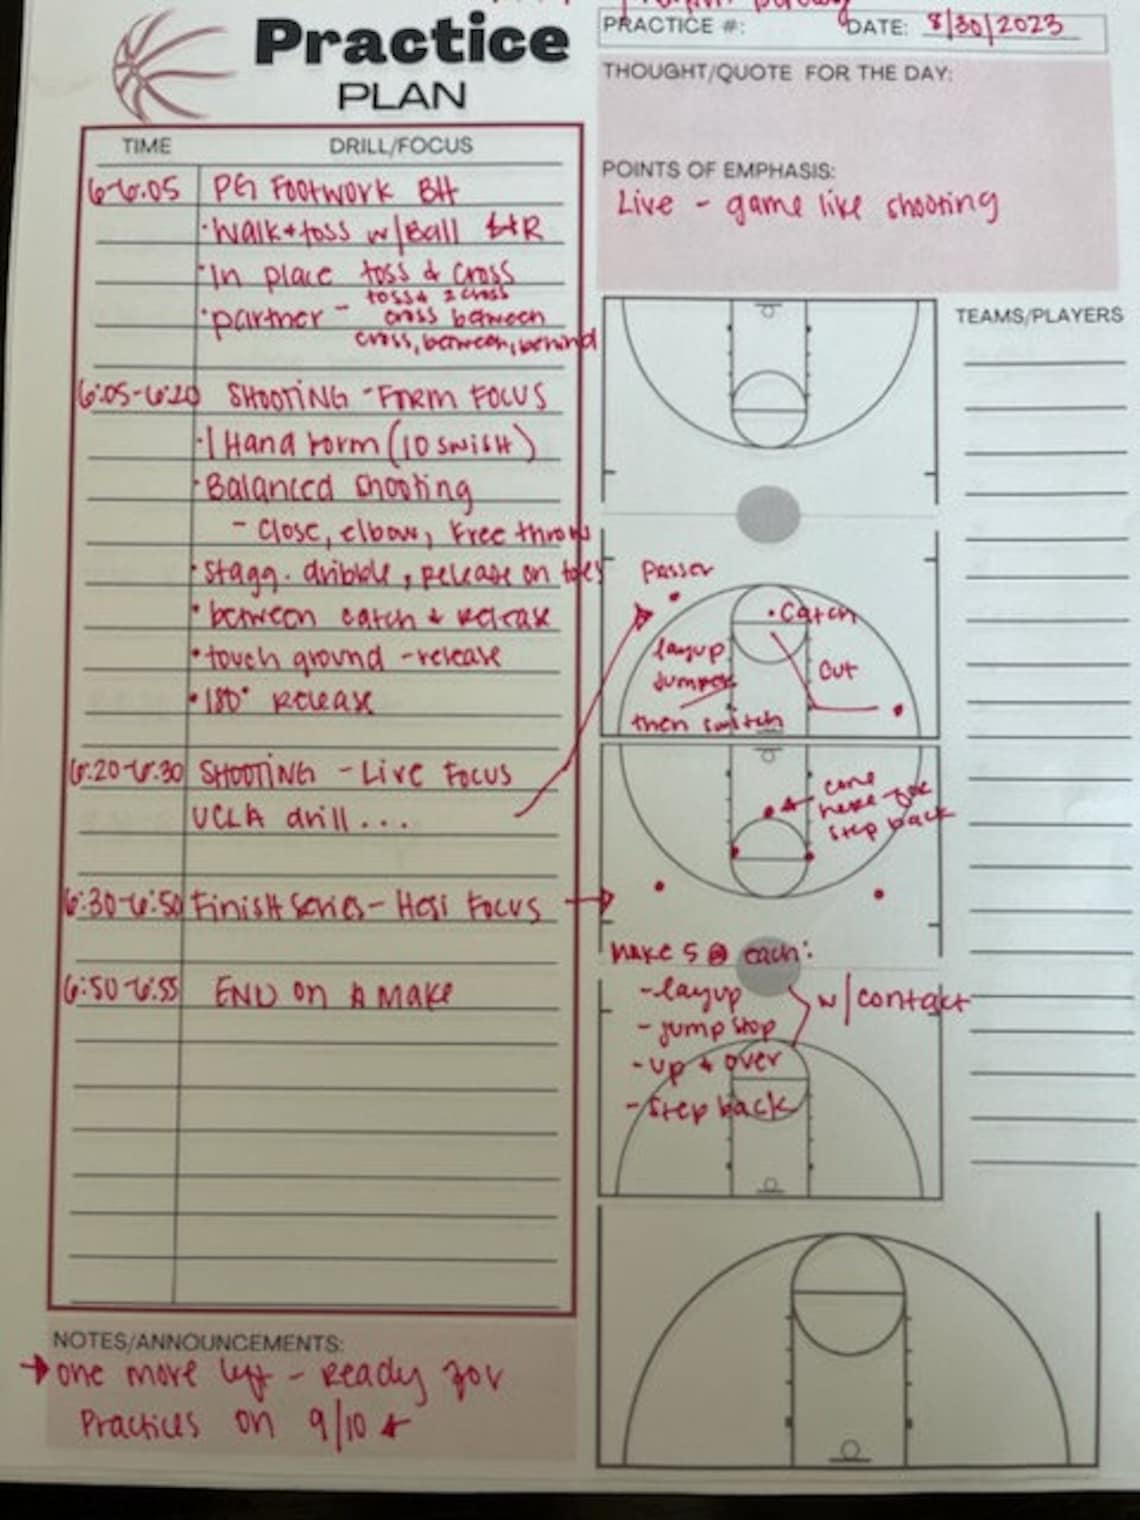 Practice
PLAN
PRACTICE #:
DATE: 8/30/2023
THOUGHT/QUOTE FOR THE DAY:
POINTS OF EMPHASIS:
Live - game like shooting
TIME DRILL/FOCUS
6-6:05 PG FOOTWORK BH
• Walk + toss w/Ball
• In place toss & cross
• partner - toss & 2 cross
cross between
cross, between, behind
6:05-6:20 SHOOTING - Form FOCUS
• 1 Hand form (10 SWISH)
• Balanced shooting
- Close, elbow, Free throw
• Stagg. dribble, release on toes
• between catch & release
• touch ground - release
• 180° Release
6:20-6:30 SHOOTING - Live Focus
UCLA drill...
6:30-6:50 Finish Series - Hesi Focus
6:50-6:55 END on A Make
NOTES/ANNOUNCEMENTS:
→ one more left - Ready for
Practices on 9/10
TEAMS/PLAYERS
Passer
• Catch
layup
Jumper
Cut
then switch
cone
here for
step back
Make 5 @ each:
- layup
w/contact
- jump stop
- up & over
- Step back